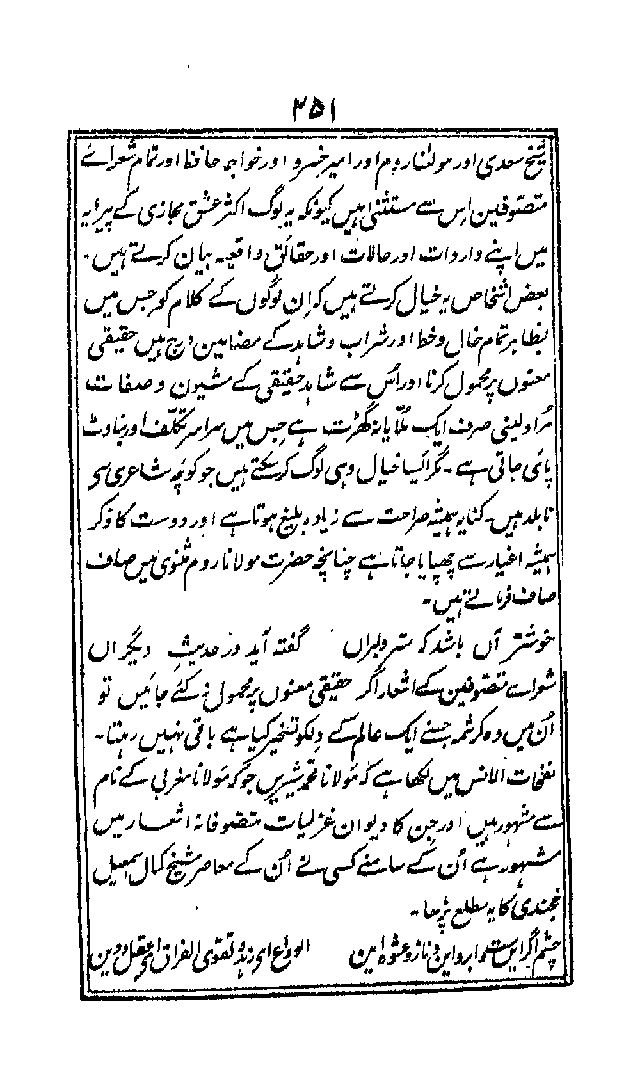 ۲۵۱
شیخ سعدی اور مولانا روم اور امیر خسرو اور خواجہ حافظ اور تمام شعرائے
متصوفین اس سے مستثنیٰ ہیں کیونکہ یہ لوگ اکثر عشق مجازی کے پیرایہ
میں اپنے واردات اور حالات اور حقائق واقعیہ بیان کرتے ہیں۔
بعض اشخاص یہ خیال کرتے ہیں کہ ان لوگوں کے کلام کو جس میں
بظاہر تمام خال و خط اور شراب و شاہد کے مضامین درج ہیں حقیقی
معنوں پر محمول کرنا اور اُس سے شاہد حقیقی کے شیون و صفات
مُراد لینی صرف ایک مُلّایانہ گھڑت ہے جس میں سراسر تکلف اور بناوٹ
پائی جاتی ہے۔ مگر ایسا خیال وہی لوگ کر سکتے ہیں جو کوچہ شاعری سے
نابلد ہیں۔ کنایہ ہمیشہ صراحت سے زیادہ بلیغ ہوتا ہے اور دوست کا ذکر
ہمیشہ اغیار سے چھپایا جاتا ہے چنانچہ حضرت مولانا روم مثنوی میں صاف
صاف فرماتے ہیں۔
خوشتر آں باشد کہ سرِ دلبراں گفتہ آید در حدیثِ دیگراں
شعرائے متصوفین کے اشعار اگر حقیقی معنوں پر محمول نہ کئے جائیں تو
اُن میں وہ کرشمہ جسنے ایک عالم کے دلکو تسخیر کیا ہے باقی نہیں رہتا۔
نفحات الانس میں لکھا ہے کہ مولانا محمد شیریں جو کہ مولانا مغربی کے نام
سے مشہور ہیں اور جن کا دیوان غزلیات متصوفانہ اشعار میں
مشہور ہے اُن کے سامنے کسی نے اُن کے معاصر شیخ کمال اسمعیل
خجندی کا یہ مطلع پڑھا۔
چشم اگر اینست و ابرو این و ناز و عشوہ این الوداع ای زہد و تقوی الفراق ای عقل و دین